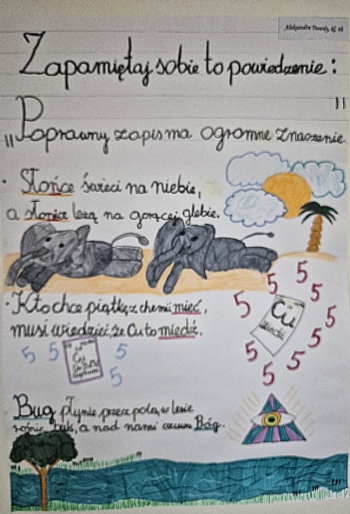 Zapamiętaj sobie to powiedzenie:
„Poprawny zapis ma ogromne znaczenie.
• Słońce świeci na niebie,
a słonie leżą na gorącej glebie.
• Kto chce piątkę z chemii mieć,
musi wiedzieć, że Cu to miedź.
5 5 5 5 5 5 5 5 5
Cu
miedź
5 5 5 5
Cu
Bug płynie przez pola, w lesie
rośnie buk, a nad nami czuwa Bóg.